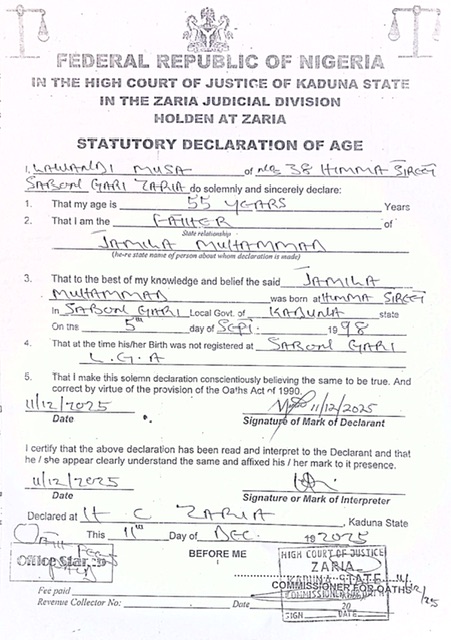 FEDERAL REPUBLIC OF NIGERIA
IN THE HIGH COURT OF JUSTICE OF KADUNA STATE
IN THE ZARIA JUDICIAL DIVISION
HOLDEN AT ZARIA
STATUTORY DECLARATION OF AGE
I, LAWANDI MUSA of No 38 HIMMA STREET
SABON GARI ZARIA do solemnly and sincerely declare:
1. That my age is 55 YEARS Years
2. That I am the FATHER of
State relationship
JAMILA MUHAMMAD
(he-re state name of person about whom declaration is made)
3. That to the best of my knowledge and belief the said JAMILA
MUHAMMAD was born at HIMMA STREET
In SABON GARI Local Govt. of KADUNA state
On the 5th day of SEPT. 1998
4. That at the time his/her Birth was not registered at SABON GARI
L.G.A
5. That I make this solemn declaration conscientiously believing the same to be true. And
correct by virtue of the provision of the Oaths Act of 1990.
11/12/2025 11/12/2025
Date Signature of Mark of Declarant
I certify that the above declaration has been read and interpret to the Declarant and that
he / she appear clearly understand the same and affixed his / her mark to it presence.
11/12/2025
Date Signature or Mark of Interpreter
Declared at H C ZARIA, Kaduna State
This 11th Day of DEC. 192025
BEFORE ME
Office Star
HIGH COURT OF JUSTICE
ZARIA
KADUNA STATE
COMMISSIONER FOR OATHS
20
SIGN DATE
Fee paid
Revenue Collector No: Date